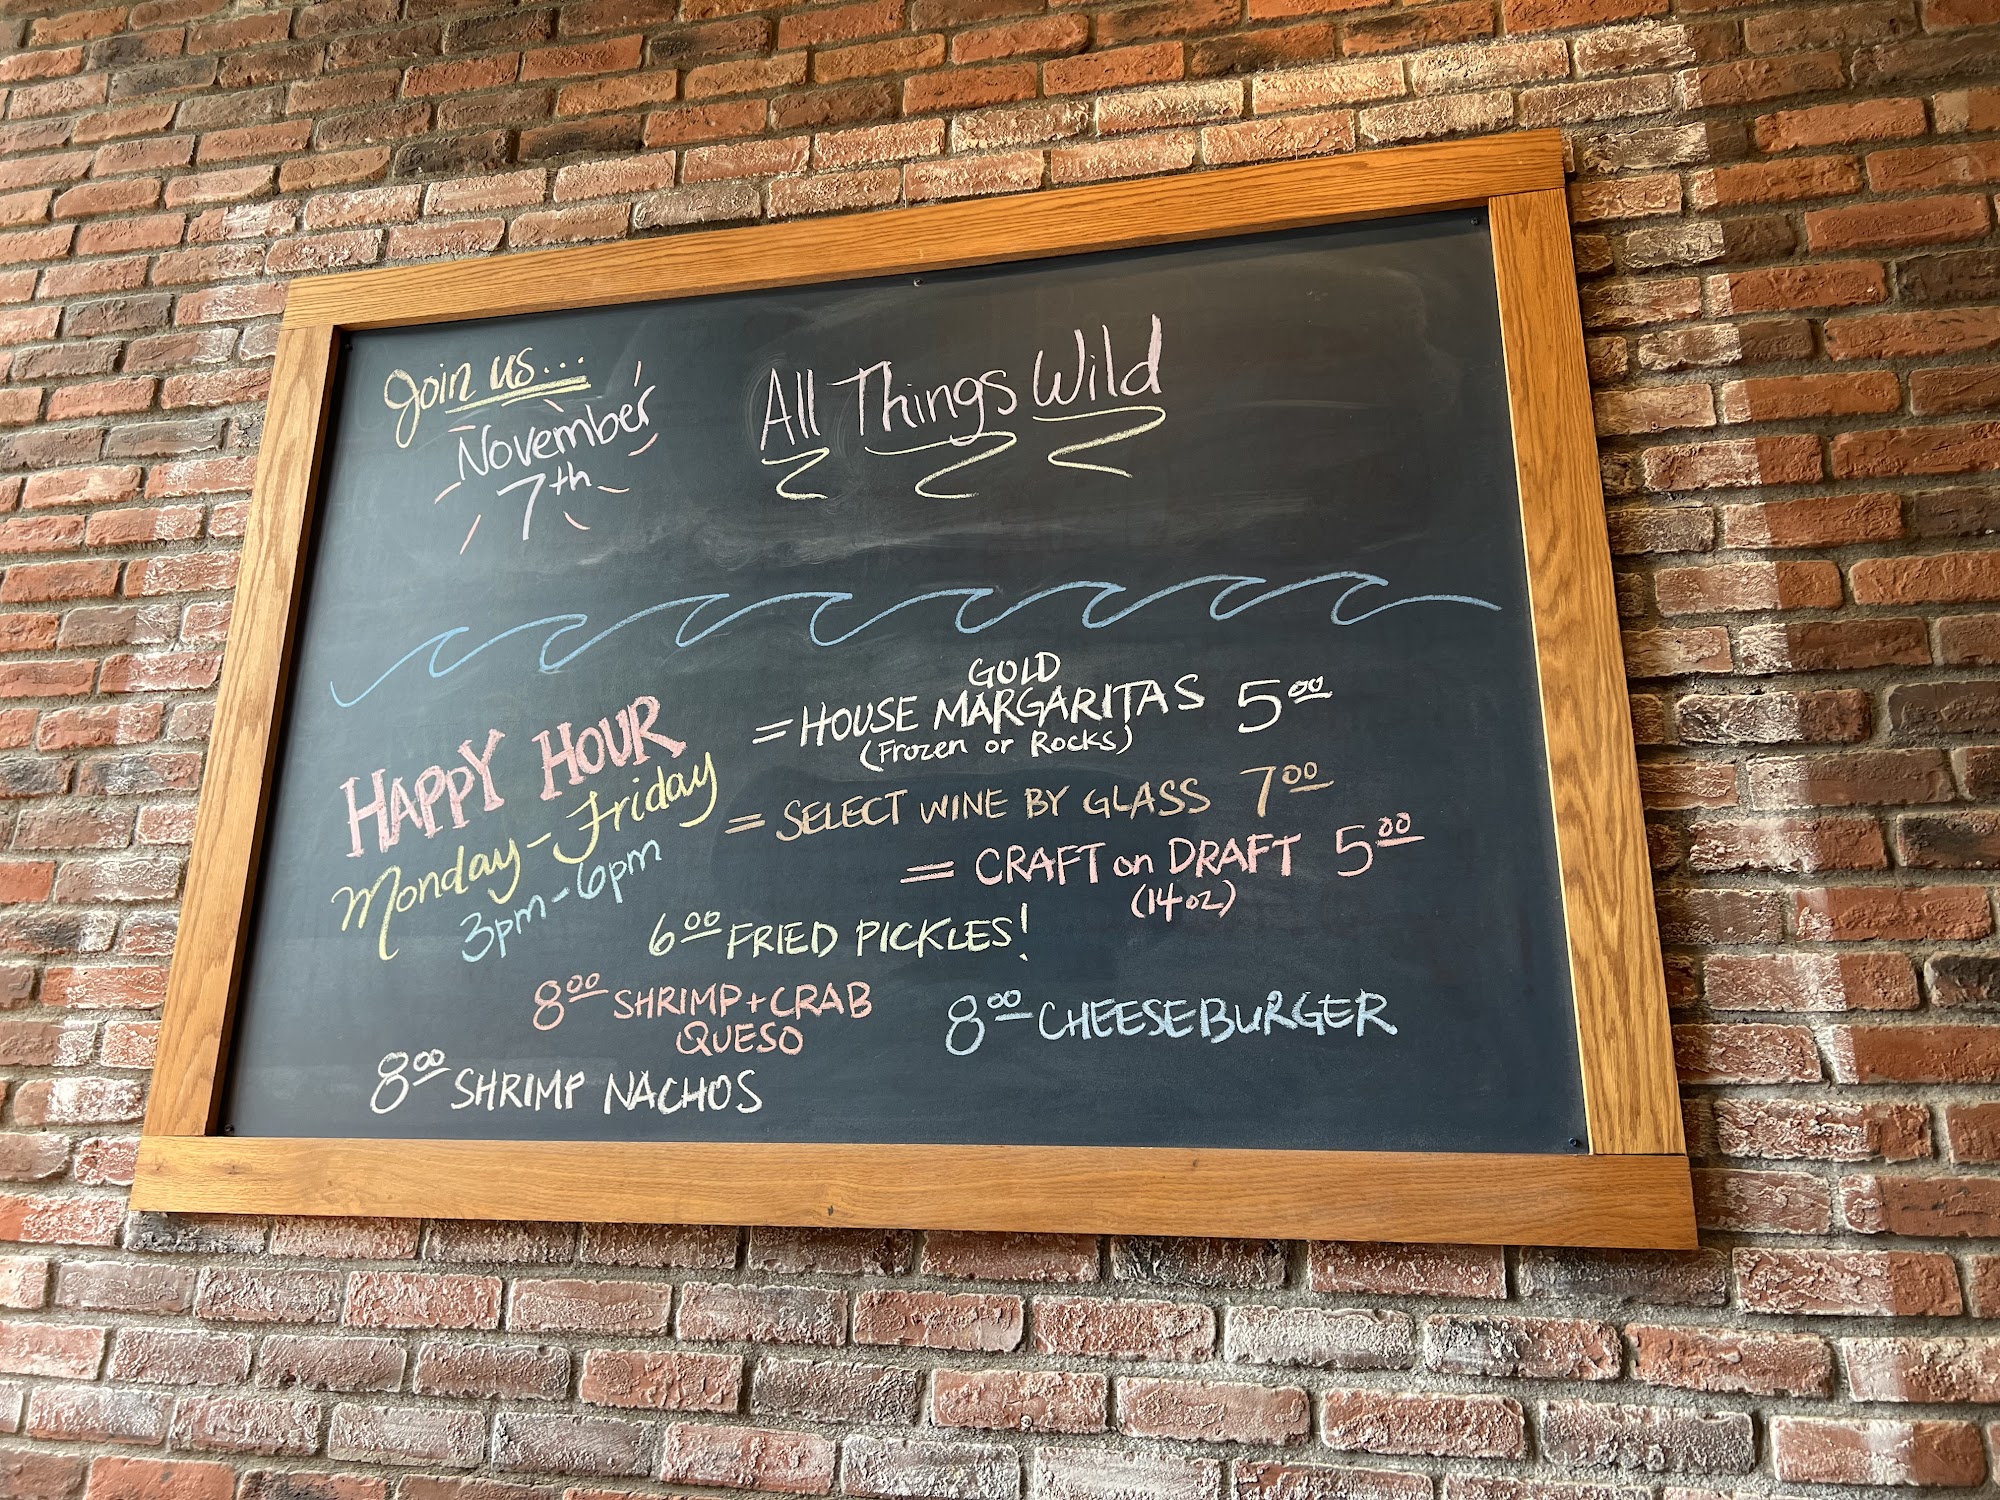 Join us...
November
7th
All Things Wild
HAPPY HOUR
Monday-Friday
3pm-6pm
GOLD
= HOUSE MARGARITAS 500
(Frozen or Rocks)
= SELECT WINE BY GLASS 700
= CRAFT on DRAFT 500
(14oz)
600 FRIED PICKLES!
800 SHRIMP+CRAB
QUESO
800 CHEESEBURGER
800 SHRIMP NACHOS